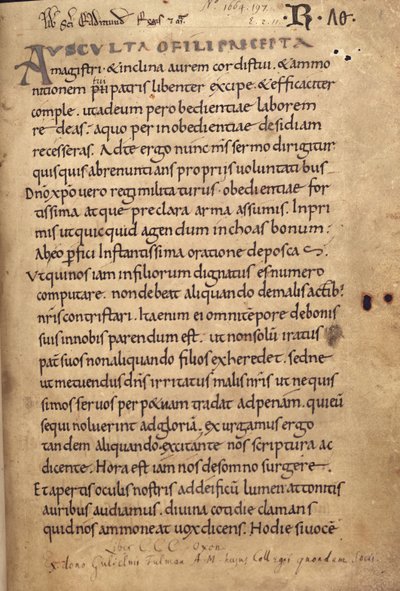 Lib Sci Eadmundi Regis & m̄
Nº 1664.197.
E. 2. 11.
R. ΛΘ.
AUSCULTA O FILI PRECEPTA
magistri· & inclina aurem cordis tui· & ammo
nitionem pii patris libenter excipe· & efficaciter
tui
comple· ut ad eum per obedientiae laborem
redeas· a quo per inobedientiae desidiam
recesseras. Ad te ergo nunc m̄s sermo dirigitur
quisquis abrenuntians propriis voluntatibus
Dn̄o xp̄o vero regi militaturus· obedientiae for
tissima atque preclara arma assumis. In pri
mis ut quicquid agendum inchoas bonum·
Ab eo p̄fici Instantissima oratione deposcas·
Ut qui nos iam in filiorum dignatus est numero
computare· non debeat aliquando de malis actib;
nr̄is contristari. Ita enim ei omni tēpore de bonis
suis in nobis parendum est· ut non solū iratus
pat̄ suos non aliquando filios exheredet· sed ne
ut metuendus dn̄s irritatus malis nr̄is ut nequis
simos servos perp&uam tradat ad penam· qui eū
sequi noluerint ad gloriā. Exurgamus ergo
tandem aliquando excitante nōs scriptura ac
dicente. Hora est iam nos de somno surgere·
Et apertis oculis nostris ad deificū lumen attonitis
auribus audiamus· divina cotidie clamans
quid nos ammoneat vox dicens. Hodie si vocē
Liber C C C Oxon
Ex dono Gulielmi Fulman A.M. hujus Collegii quondam Socii.